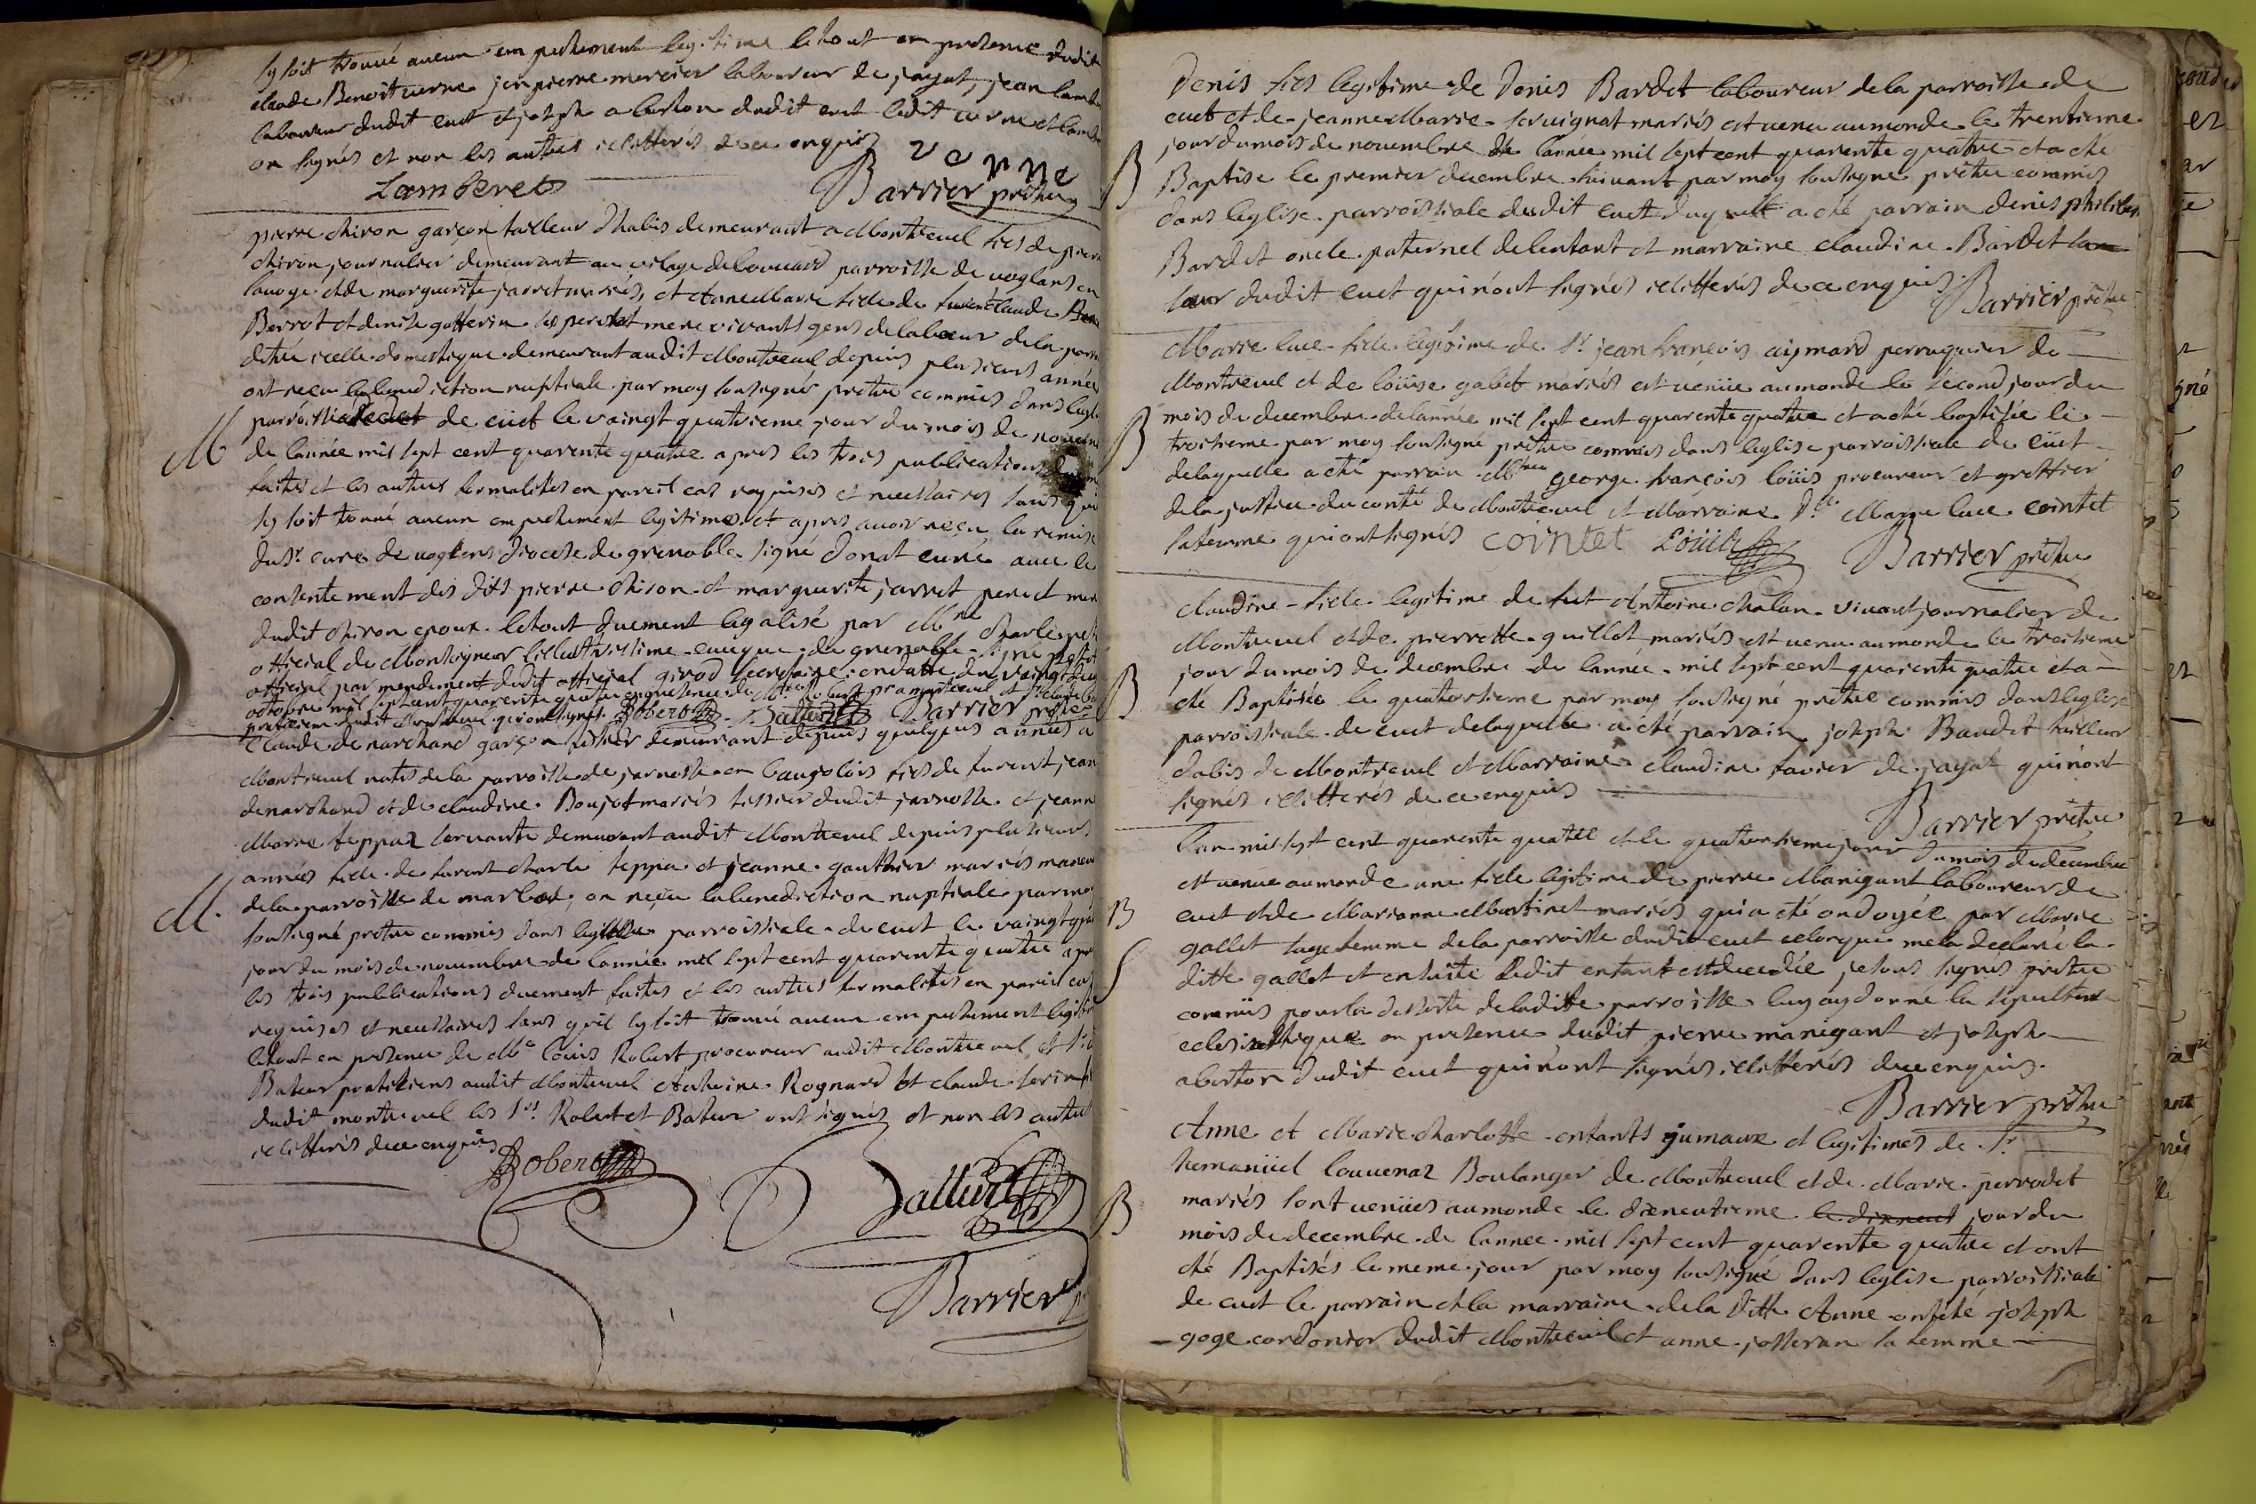 sy soit trouvé aucun empechement legitime le tout en presence dudit
claude Benoit verne jean pierre mercier laboureur de jayat, jean lamb
laboureur dudit cuet et joseph aberton dudit cuet ledit verne et lamb
on signés et non les autres illitterés de ce enquis
verne
Lamberet Barrier prêtre
pierre chiron garçon tailleur d'habis demeurant a Montreuel fils de pierre
chiron journalier demeurant au vilage de parroisse de voglans en
savoye et de marguerite jarret mariés, et Anne Marie fille de claude
Berrot et denise gotterin ses pere et mere vivants gens de labeur de la parr
dittu icelle domestique demeurant audit Montreuel depuis plusieurs années
ont reçu la benediction nuptiale par moy soussigné prêtre commis dans legl
parroissiale de cuet le vaingt quatrieme jour du mois de novem
M de lannée mil sept cent quarente quatre apres les trois publications
faites et les autres formalités en pareil cas requises et necessaires sans qui
sy soit trouvé aucun empechement legitime et apres avoir reçu la remise
du Sr. curé de voglens diocese de grenoble signé Donat curé avec le
consentement des dits pierre chiron et marguerite jarret pere et mere
dudit chiron epoux le tout duement legalisé par Mre charle
official de Monseigneur lillustrissime eveque de grenoble
official par mendement dudit official girod secretaire en datte du vaingt
octobre mil sept cent quarente quatre en presence de Robert pr a montreuel et
praticien dudit Montreuel qui ont signés Robert Batteur Barrier prêtre
Claude demarchand garçon tissier demeurant depuis quelques années a
Montreuel natif de la parroisse de jarnosse en Baujolois fils de furent jean
demarchand et de claudine Boujot mariés tissier dudit jarnosse et jeanne
Marie teppaz servante demeurant audit Montreuel depuis plusieurs
années fille de furent charle teppa et jeanne gauthier mariés
M. de la parroisse de marboz, on reçu la benediction nuptiale par moy
soussigné prêtre commis dans leglise parroissiale de cuet le vaingt
jour du mois de novembre de lannée mil sept cent quarente quatre apre
les trois publications duement faites et les autres formalités en pareil cas
requises et necessaires sans quil sy soit trouvé aucun empechement legiti
letout en presence de Me louis Robert procureur audit Montreuel et
Bateur pratitiens audit Montreuel Antoine Rognard et claude
dudit montreuel les Srs. Robert et Bateur ont signés et non les autres
illitterés de ce enquis
Robert Batteur
Barrier
Denis fils legitime de Denis Bardet laboureur de la parroisse de
cuet et de jeanne Marie servignat mariés est venu au monde le trentieme
jour du mois de novembre de lannée mil sept cent quarente quatre et a eté
B Baptise le premier decembre suivant par moy soussigné prêtre commis
dans leglise parroissiale dudit cuet duquel a eté parrain denis philibert
Bardet oncle paternel de lenfant et marraine claudine Bardet
sœur dudit cuet qui n'ont signés illitterés de ce enquis.
Barrier prêtre
Marie luce fille legitime de Sr. jean françois aymard perruquier de
Montreuel et de loüise gabet mariés est venüe au monde le second jour du
mois de decembre de lannée mil sept cent quarente quatre et a eté baptisée le
B troisieme par moy soussigné prêtre commis dans leglise parroissiale de cüet
delaquelle a eté parrain Mtre george françois loüis procureur et greffier
de la justice du conté de Montreuel et Marraine Dlle Marie luce cointet
sa femme qui ont signés cointet Loüis Barrier prêtre
claudine fille legitime de fut Antoine chalan vivant journalier de
Montreuel et de pierrette guillet mariés est venu au monde le treisieme
jour du mois de decembre de lannée mil sept cent quarente quatre et a
B eté Baptisée le quatorsieme par moy soussigné prêtre commis dans leglise
parroissiale de cuet delaquelle a eté parrain joseph Baudet tailleur
dabis de Montreuel et Marraine claudine favier de jayat qui n'ont
signés illitterés de ce enquis
Barrier prêtre
l'an mil sept cent quarente quatre et le quatorsieme jour du mois de decembre
est venue au monde une fille legitime de pierre Manigant laboureur de
B cuet et de Marianne Martinet mariés qui a eté ondoyée par Marie
gallet sage femme de la parroisse dudit cuet selonque me la declaré la
S ditte gallet et ensuite ledit enfant est decedée je sous signés prêtre
commis pour la desserte de laditte parroisse luy ay donné la sepulture
eclesiastique en presence dudit pierre manigant et joseph
aberton dudit cuet qui n'ont signés illitterés de ce enquis.
Barrier prêtre
Anne et Marie charlotte enfants jumaux et legitimes de Sr.
hemanüel louvenaz Boulanger de Montreuel et de Marie perrodet
B mariés sont venües au monde le dixneufieme le dixneuf jour du
mois de decembre de lannee mil sept cent quarente quatre et ont
eté Baptisés le meme jour par moy soussigné dans leglise parroissiale
de cuet le parrain et la marraine de la ditte Anne onteté joseph
goge cordonier dudit Montreuel et anne josseran sa femme